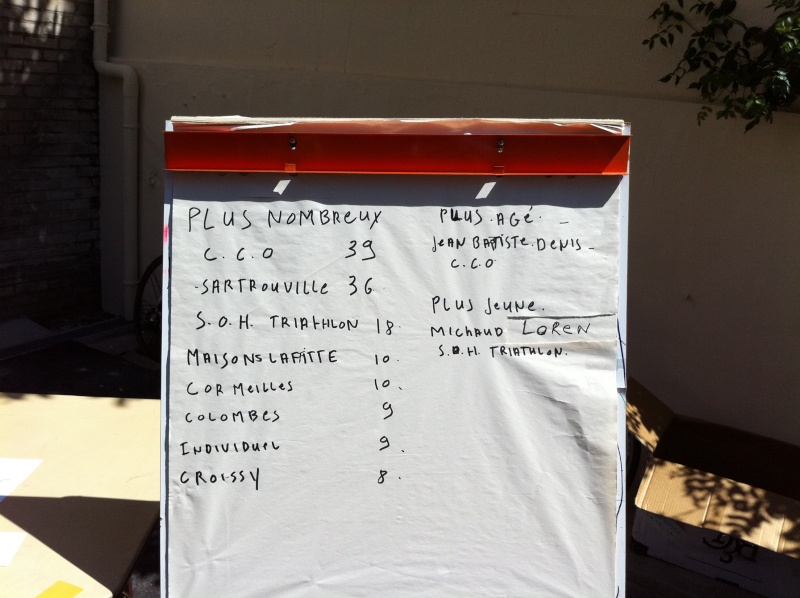 PLUS NOMBREUX
C.C.O 39
-SARTROUVILLE 36
S.O.H. TRIATHLON 18.
MAISONS LAFFITTE 10.
CORMEILLES 10.
COLOMBES 9
INDIVIDUEL 9.
CROISSY 8.
PLUS.AGÉ. -
JEAN BATISTE.DENIS -
C.C.O
PLUS JEUNE.
MICHAUD LOREN
S.O.H. TRIATHLON.